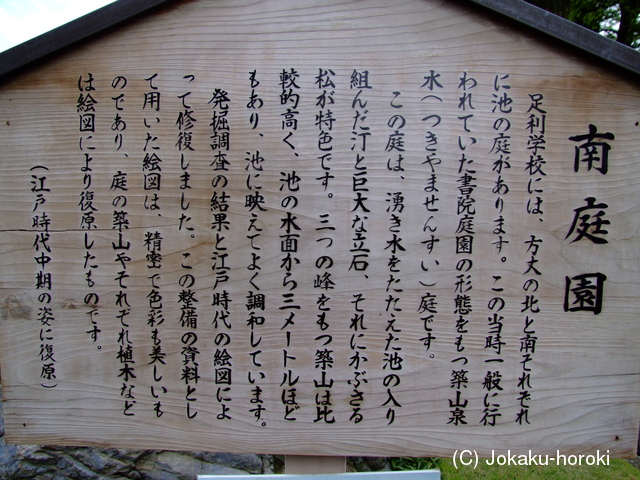 南庭園
足利学校には、方丈の北と南それぞれ
に池の庭があります。この当時一般に行
われていた書院庭園の形態をもつ築山泉
水(つきやませんすい)庭です。
この庭は、湧き水をたたえた池の入り
組んだ汀と巨大な立石、それにかぶさる
松が特色です。三つの峰をもつ築山は比
較的高く、池の水面から三メートルほど
もあり、池に映えてよく調和しています。
発掘調査の結果と江戸時代の絵図によ
って修復しました。この整備の資料とし
て用いた絵図は、精密で色彩も美しいも
のであり、庭の築山やそれぞれ植木など
は絵図により復原したものです。
(江戸時代中期の姿に復原)
(C) Jokaku-horoki